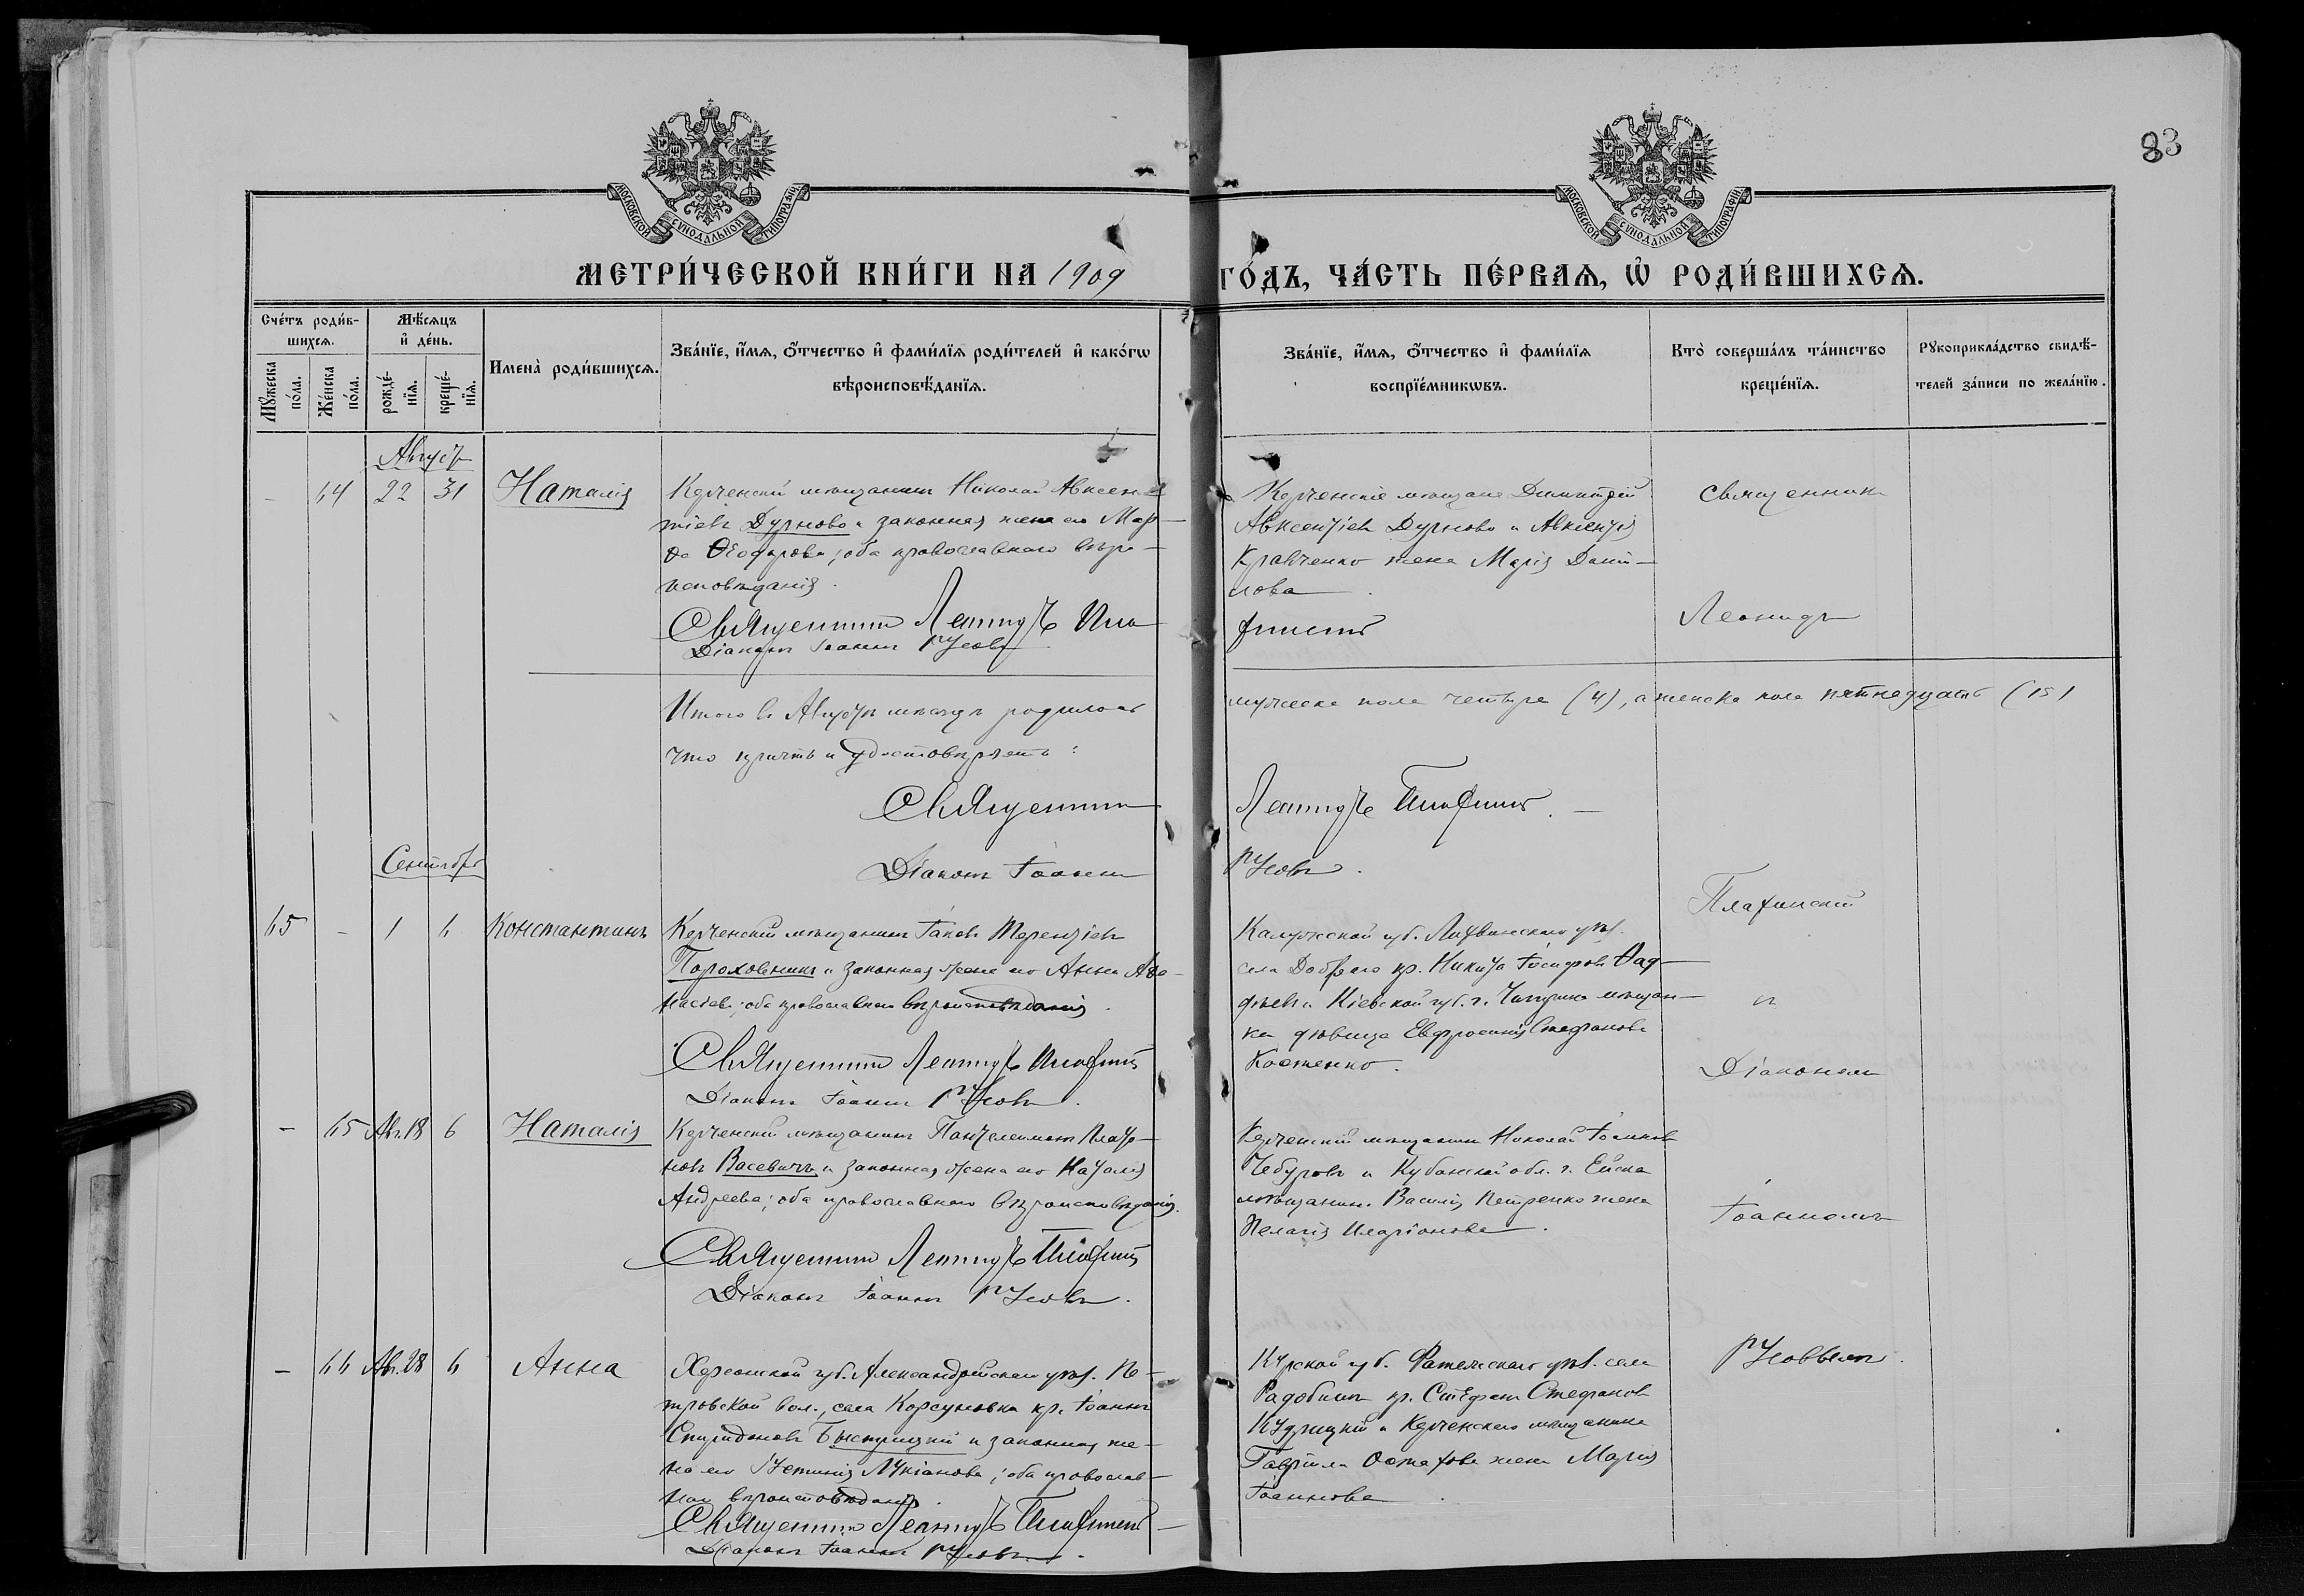 83
МОСКОВСКОЙ СѴНОДАЛЬНОЙ ТИПОГРАФІИ
МОСКОВСКОЙ СѴНОДАЛЬНОЙ ТИПОГРАФІИ
МЕТРИ́ЧЕСКОЙ КНИ́ГИ НА 1909 ГО́ДЪ, ЧА́СТЬ ПЕ́РВАѦ, Ѡ҆ РОДИ́ВШИХСѦ.
Сче́тъ роди́в-
шихсѧ.
Мꙋ́жеска по́ла.
Же́нска по́ла.
Мѣ́сѧцъ
и҆ де́нь.
рожде́-
нїѧ.
креще́-
нїѧ.
Имена̀ роди́вшихсѧ.
Зва́нїе, и҆́мѧ, ѻ҆́тчество и҆ фами́лїѧ роди́телей и҆ како́гѡ
вѣроисповѣ́данїѧ.
Зва́нїе, и҆́мѧ, ѻ҆́тчество и҆ фами́лїѧ
воспрїе́мникѡвъ.
Кто̀ соверша́лъ та́инство
креще́нїѧ.
Рꙋкоприкла́дство свидѣ́-
телей за́писи по жела́нїю.
Августъ
- 64 22 31 Наталія
Керченскій мѣщанинъ Николай Авксен-
тіевъ Дурново и законная жена его Мар-
ѳа Ѳеодорова; оба православнаго вѣро-
исповѣданія.
Священникъ Леонидъ Пла-
Діаконъ Іоаннъ Русовъ
Керченскіе мѣщане Димитрій
Авксентіевъ Дурново и Авксентія
Кравченко жена Марія Дани-
лова.
финскій
Священникъ
Леонидъ
Итого въ Августѣ мѣсяцѣ родилось мужеска пола четыре (4), а женска пола пятнадцать (15)
что причтъ и удостовѣряетъ:
Священникъ Леонидъ Плафинскій.
Діаконъ Іоаннъ Русовъ.
Сентябрь
65 - 1 6 Константинъ
Керченскій мѣщанинъ Іаковъ Терентіевъ
Пороховникъ и законная жена его Анна Аѳа-
насіева; оба православнаго вѣроисповѣданія.
Священникъ Леонидъ Плафинскій
Діаконъ Іоаннъ Русовъ.
Калужской губ. Лихвинскаго уѣз.
села Добраго кр. Никита Іосифовъ Ѳад-
дѣевъ и Кіевской губ. г. Чигирина мѣщан-
ка дѣвица Евфросинія Стефанова
Костенко.
Плафинскій
и
Діакономъ
- 65 Авг. 18 6 Наталія
Керченскій мѣщанинъ Пантелеимонъ Плато-
новъ Васевичъ и законная жена его Наталія
Андреева; оба православнаго вѣроисповѣданія.
Священникъ Леонидъ Плафинскій
Діаконъ Іоаннъ Русовъ.
Керченскій мѣщанинъ Николай Іоанновъ
Чебуровъ и Кубанской обл. г. Ейска
мѣщанина Василія Петренко жена
Пелагія Иларіонова.
Іоанномъ
- 66 Авг. 28 6 Анна
Херсонской губ. Александрійскаго уѣз. Пе-
тровской вол., села Корсуновка кр. Іоаннъ
Спиридоновъ Быстрицкій и законная же-
на его Устинія Лукіанова; оба православ-
наго вѣроисповѣданія.
Священникъ Леонидъ Плафинскій
Діаконъ Іоаннъ Русовъ.
Курской губ. Фатежскаго уѣз. села
Радобинъ кр. Стефанъ Стефановъ
Кудрицкій и Керченскаго мѣщанина
Гавріила Остахова жена Марія
Іоаннова.
Русовымъ.